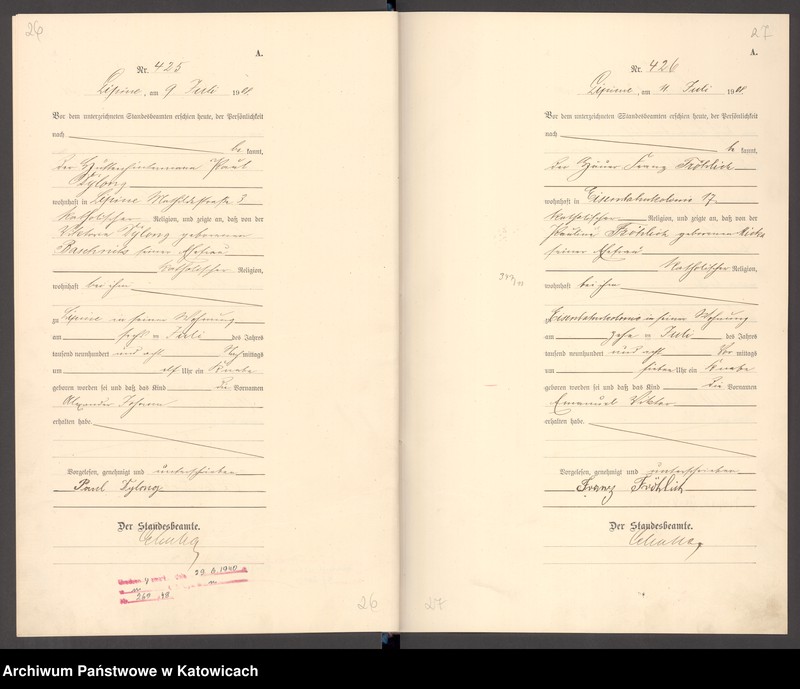 26
A.
Nr. 425
Lipine, am 9 Juli 19
Vor dem unterzeichneten Standesbeamten erschien heute, der Persönlichkeit
nach
kannt,
der Paul
Dylong
wohnhaft in Lipine Mathildestraße 3
katholischer Religion, und zeigte an, daß von der
Viktoria Dylong geborenen
seiner Ehefrau
katholischer Religion,
wohnhaft bei ihm
zu Lipine in seiner Wohnung
am sechs en Juli des Jahres
tausend neunhundert und acht Nachmittags
um elf Uhr ein Knabe
geboren worden sei und daß das Kind die Vornamen
Alexander Johann
erhalten habe.
Vorgelesen, genehmigt und unterschrieben
Paul Dylong
Der Standesbeamte.
26
27
A.
Nr. 426
Lipine, am 11 Juli 19
Vor dem unterzeichneten Standesbeamten erschien heute, der Persönlichkeit
nach
kannt,
der Häuer Franz Fröhlich
wohnhaft in Eisenbahnkolonie 17
katholischer Religion, und zeigte an, daß von der
Pauline Fröhlich geborenen
seiner Ehefrau
katholischer Religion,
wohnhaft bei ihm
Eisenbahnkolonie in seiner Wohnung
am zehn en Juli des Jahres
tausend neunhundert und acht Vor mittags
um sieben Uhr ein Knabe
geboren worden sei und daß das Kind die Vornamen
Emanuel Viktor
erhalten habe.
Vorgelesen, genehmigt und unterschrieben
Franz Fröhlich
Der Standesbeamte.
27
Archiwum Państwowe w Katowicach